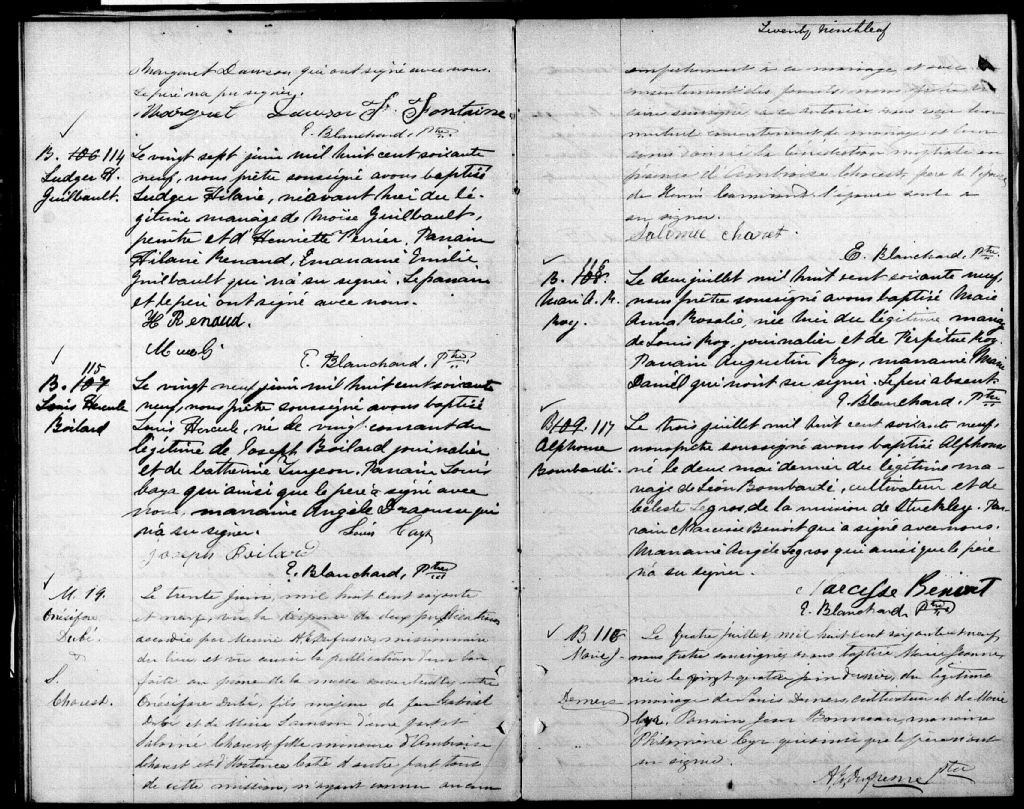 Margaret Dawson qui ont signé avec nous.
Le père n'a pu signer.
Margret Dawson F. Fontaine
E. Blanchard, Ptre
B. 106 114
Ludger H.
Guilbault.
Le vingt sept juin mil huit cent soixante
neuf, nous prêtre soussigné avons baptisé
Ludger Hilaire, né avant hier du lé-
gitime mariage de Moïse Guilbault,
peintre et d'Henriette Perrier, Parain
Hilaire Renaud, Emaraine Emilie
Guilbault qui n'a su signer. Le parain
et le père ont signé avec nous.
H Renaud.
E. Blanchard, Ptre
115
B. 107
Louis Hercule
Boilard
Le vingt neuf juin mil huit cent soixante
neuf, nous prêtre soussigné avons baptisé
Louis Hercule, né le vingt courant du
légitime de Joseph Boilard journalier
et de Catherine Turgeon. Parain Louis
Caya qui ainsi que le père a signé avec
nous, maraine Angèle qui
n'a su signer. Louis Caya
Joseph Boilard
E. Blanchard, Ptre
M. 19.
Onésifore
Dubé.
&
S.
Chouest.
Le trente Juin, mil huit cent soixante
et neuf, vu la dispense de deux publications
accordée par Messire A. E. Dufresne, missionnaire
du lieu et vu aussi la publication d'un ban
faite au prône de la messe entre
Onésifore Dubé, fils majeur de feu Gabriel
Dubé et de Marie Samson d'une part et
Salomé Chouest, fille mineure d'Ambroise
Chouest et d'Hortence Coté d'autre part tous
de cette mission, n'ayant connu aucun
Twenty ninth leaf
empêchement à ce mariage et avec
consentement des parents, nous
soussigné avons reçu leur
mutuel consentement de mariage et leur
avons donné la bénédiction nuptiale en
présence d'Ambroise Chouest, père de l'épouse
de Henri l'épouse seule a
su signer.
Salomée Charet.
E. Blanchard, Ptre
B. 108. 116
Marie A. R.
Roy.
Le deux juillet mil huit cent soixante neuf,
nous prêtre soussigné avons baptisé Marie
Anna Rosalie, née hier du légitime mariage
de Louis Roy, journalier et de Perpétue Roy
Parain Augustin Roy, maraine Marie
Daniel qui n'ont su signer. Le père absent
E. Blanchard, Ptre
B 109. 117
Alphonse
Bombardi.
Le trois juillet mil huit cent soixante neuf,
nous prêtre soussigné avons baptisé Alphonse
né le deux mai dernier du légitime ma-
riage de Léon Bombardé, cultivateur et de
Céleste Legros de la mission de Stuckley. Pa-
rain Narcisse Benoit qui a signé avec nous.
Maraine Angèle Legros qui ainsi que le père
n'a su signer.
Narcisse Benoit
E. Blanchard, Ptre
B 118
Marie J.
Demers
Le quatre juillet, mil huit cent soixante et neuf
nous prêtre soussigné avons baptisé Marie Jeanne,
née le vingt quatre juin dernier, du légitime
mariage de Louis Demers, cultivateur et de Marie
Cyr. Parrain Jean Bonneau, maraine
Philomène Cyr qui ainsi que le père n'ont
su signer.
A. E. Dufresne Ptre